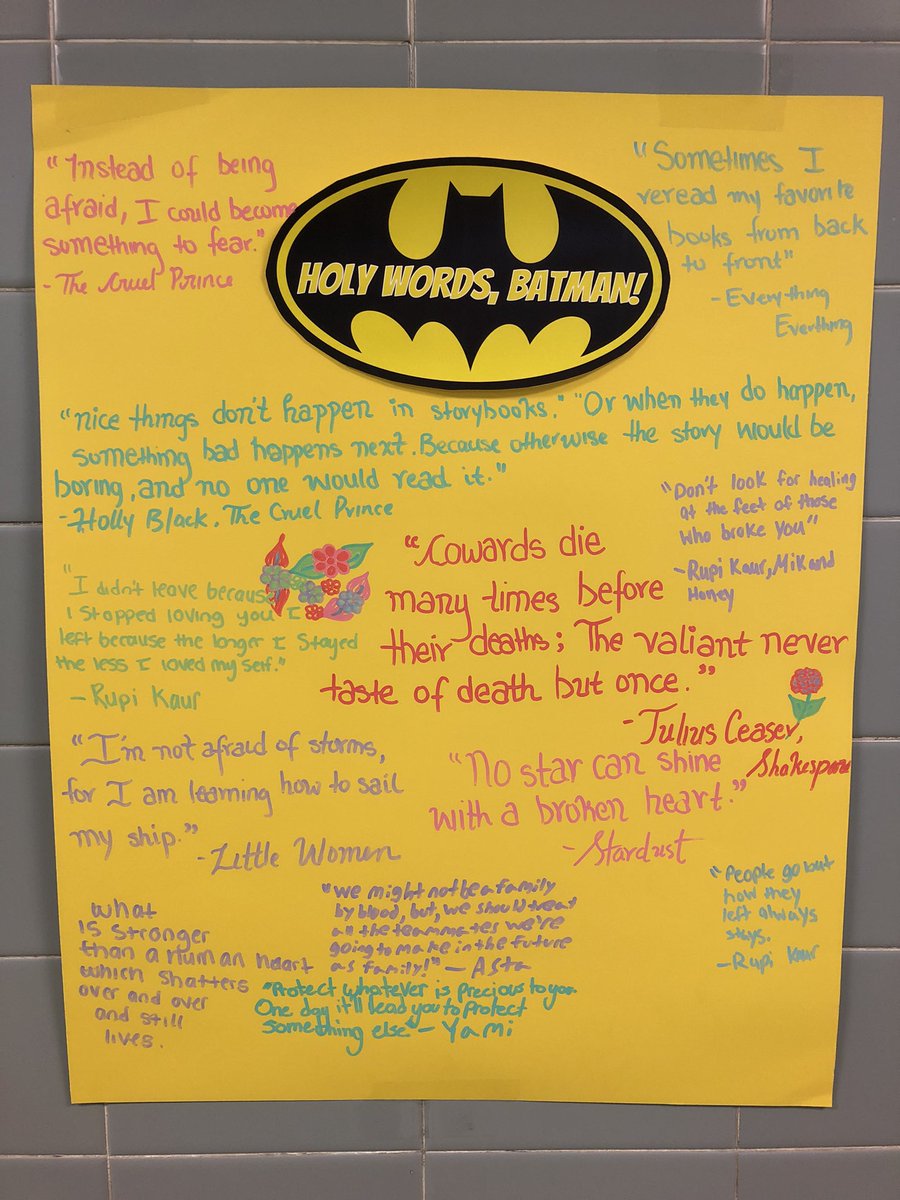 "Instead of being
afraid, I could become
something to fear."
- The Cruel Prince
HOLY WORDS, BATMAN!
"Sometimes I
reread my favorite
books from back
to front"
- Everything
Everthing
"nice things don't happen in storybooks." "Or when they do happen,
something bad happens next. Because otherwise the story would be
boring, and no one would read it."
- Holly Black. The Cruel Prince
"Don't look for healing
at the feet of those
who broke you"
- Rupi Kaur, Milk and
Honey
"Cowards die
many times before
their deaths; The valiant never
taste of death but once."
- Julius Ceaser,
Shakespeare
"I didn't leave because
I stopped loving you I
left because the longer I stayed
the less I loved my self."
- Rupi Kaur
"I'm not afraid of storms,
for I am learning how to sail
my ship."
- Little Women
"No star can shine
with a broken heart."
- Stardust
"People go but
how they
left always
stays.
- Rupi Kaur
what
is stronger
than a human heart
which shatters
over and over
and still
lives.
"we might not be a family
by blood, but, we should treat
all the teammates we're
going to make in the future
as family!" - Asta
"Protect whatever is precious to you
One day it'll lead you to protect
something else" - Yami